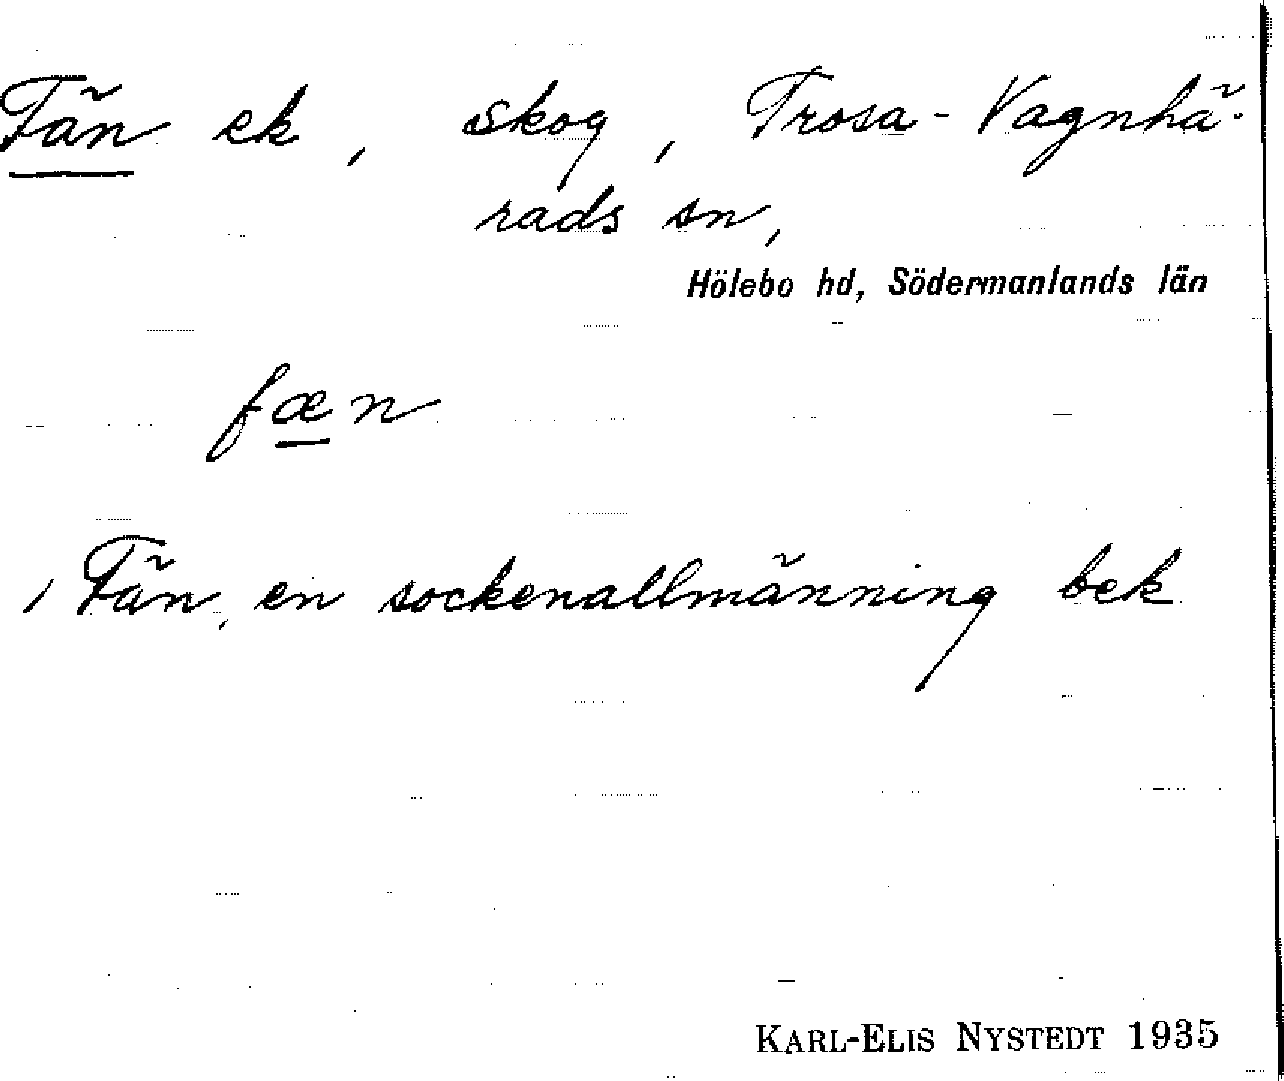 Fän ek, skog, Trosa-Vagnhä-
rads sn,
Hölebo hd, Södermanlands län
fæn
/ Fän, en sockenallmänning bek
KARL-ELIS NYSTEDT 1935